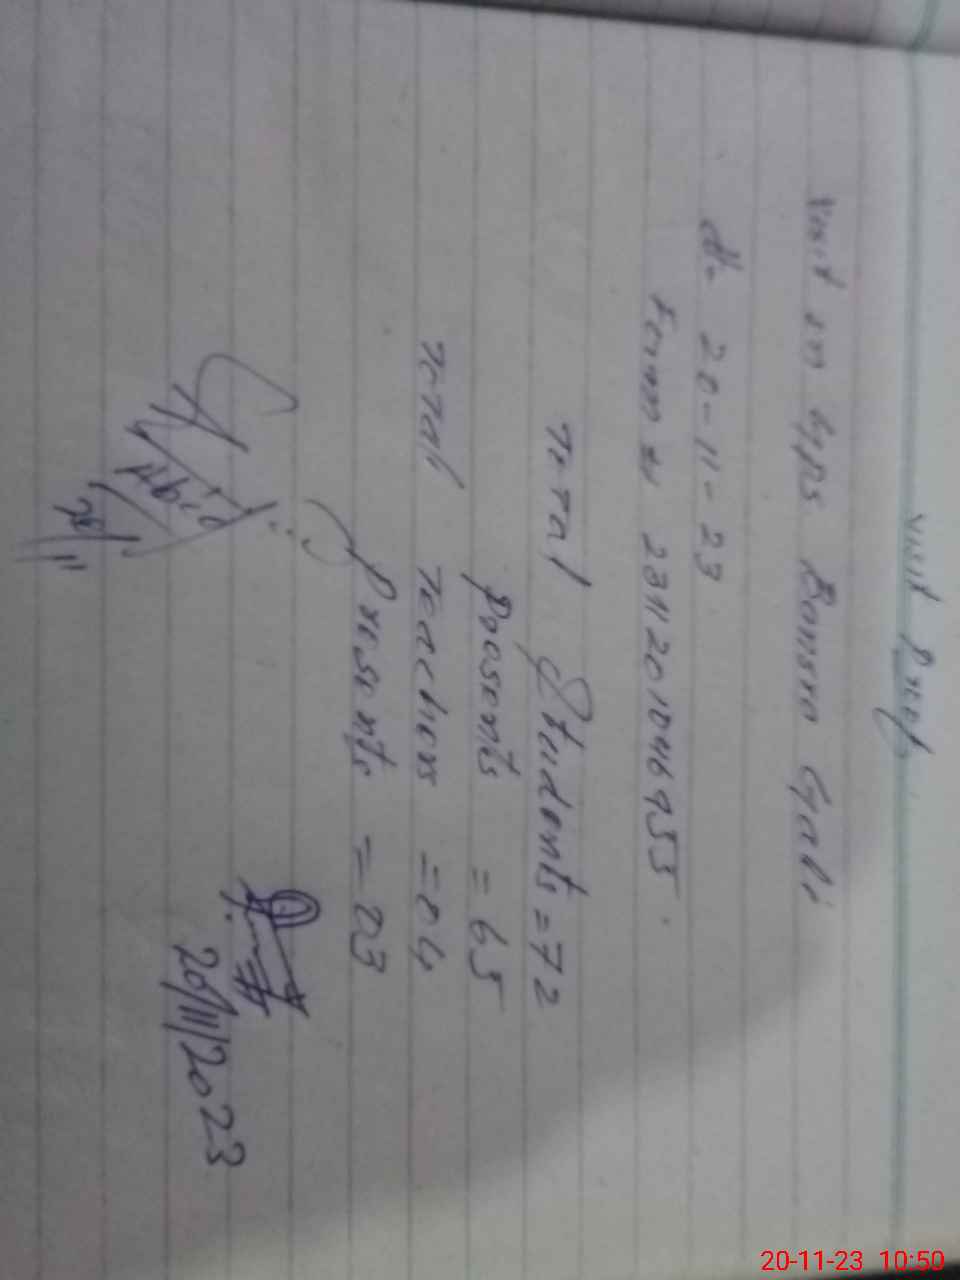 Visit Proof
Visit on GGPS Gali
dt- 20-11-23
Form #
Total Students = 72
Presents = 65
Total Teachers = 04
Presents = 03
20/11/2023
20-11-23 10:50